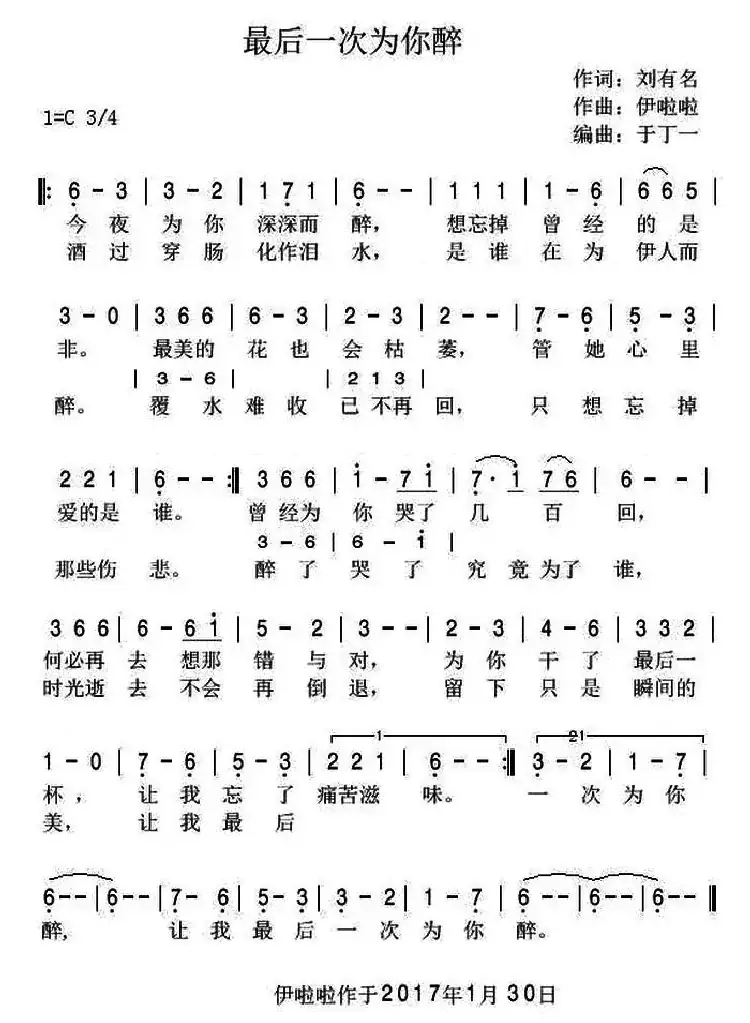 最后一次为你醉
作词：刘有名
作曲：伊啦啦
1=C 3/4
编曲：于丁一
‖: 6̣ - 3 | 3 - 2 | 1 7̣ 1 | 6̣ - - | 1 1 1 | 1 - 6̣ | 6 6 5 |
今夜 为你 深深而 醉， 想忘掉 曾经 的是
酒过 穿肠 化作泪 水， 是谁 在为 伊人而
3 - 0 | 3 6 6 | 6 - 3 | 2 - 3 | 2 - - | 7̣ - 6̣ | 5̣ - 3̣ |
非。 最美的 花也 会枯 萎， 管她 心里
| 3 - 6 | | 2 1 3 |
醉。 覆水 难收 已不再 回， 只想 忘掉
2 2 1 | 6̣ - - :‖ 3 6 6 | i - 7 i | 7̣· i 7 6 | 6 - - |
爱的是 谁。 曾经为 你哭了 几百 回，
3 - 6 | 6 - i |
那些伤 悲。 醉了 哭了 究竟为了 谁，
3 6 6 | 6 - 6 i | 5 - 2 | 3 - - | 2 - 3 | 4 - 6 | 3 3 2 |
何必再 去想那 错与 对， 为你 干了 最后一
时光逝 去不会 再倒 退， 留下 只是 瞬间的
1 2 1
1 - 0 | 7̣ - 6̣ | 5̣ - 3̣ | 2 2 1 | 6̣ - - :‖ 3̣ - 2 | 1 - 7̣ |
杯， 让我 忘了 痛苦滋 味。 一次 为你
美， 让我 最后
6̣ - - | 6̣ - - | 7̣ - 6̣ | 5̣ - 3̣ | 3̣ - 2 | 1 - 7̣ | 6̣ - - | 6̣ - - | 6̣ - - ‖
醉， 让我 最后 一次 为你 醉。
伊啦啦作于2017年1月30日